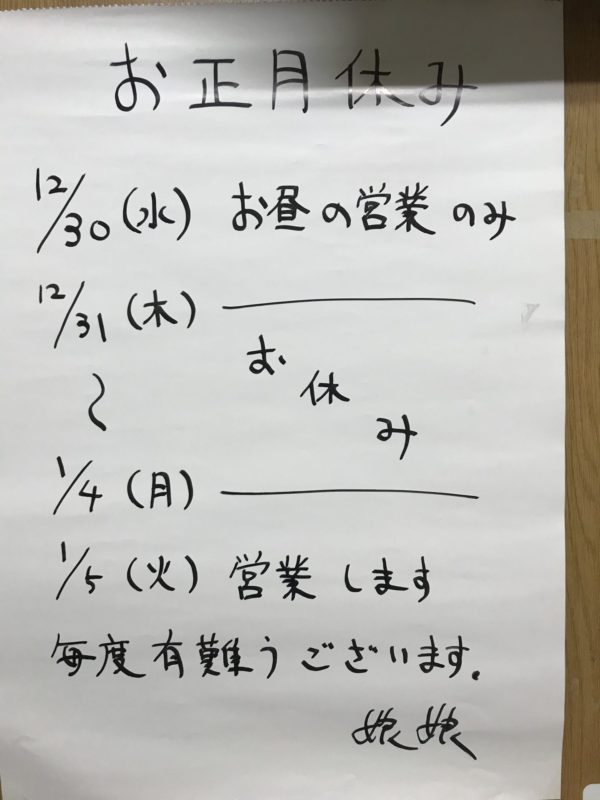 お正月休み
12/30(水) お昼の営業のみ
12/31(木)
〜 お休み
1/4(月)
1/5(火) 営業します
毎度有難うございます。
娘娘